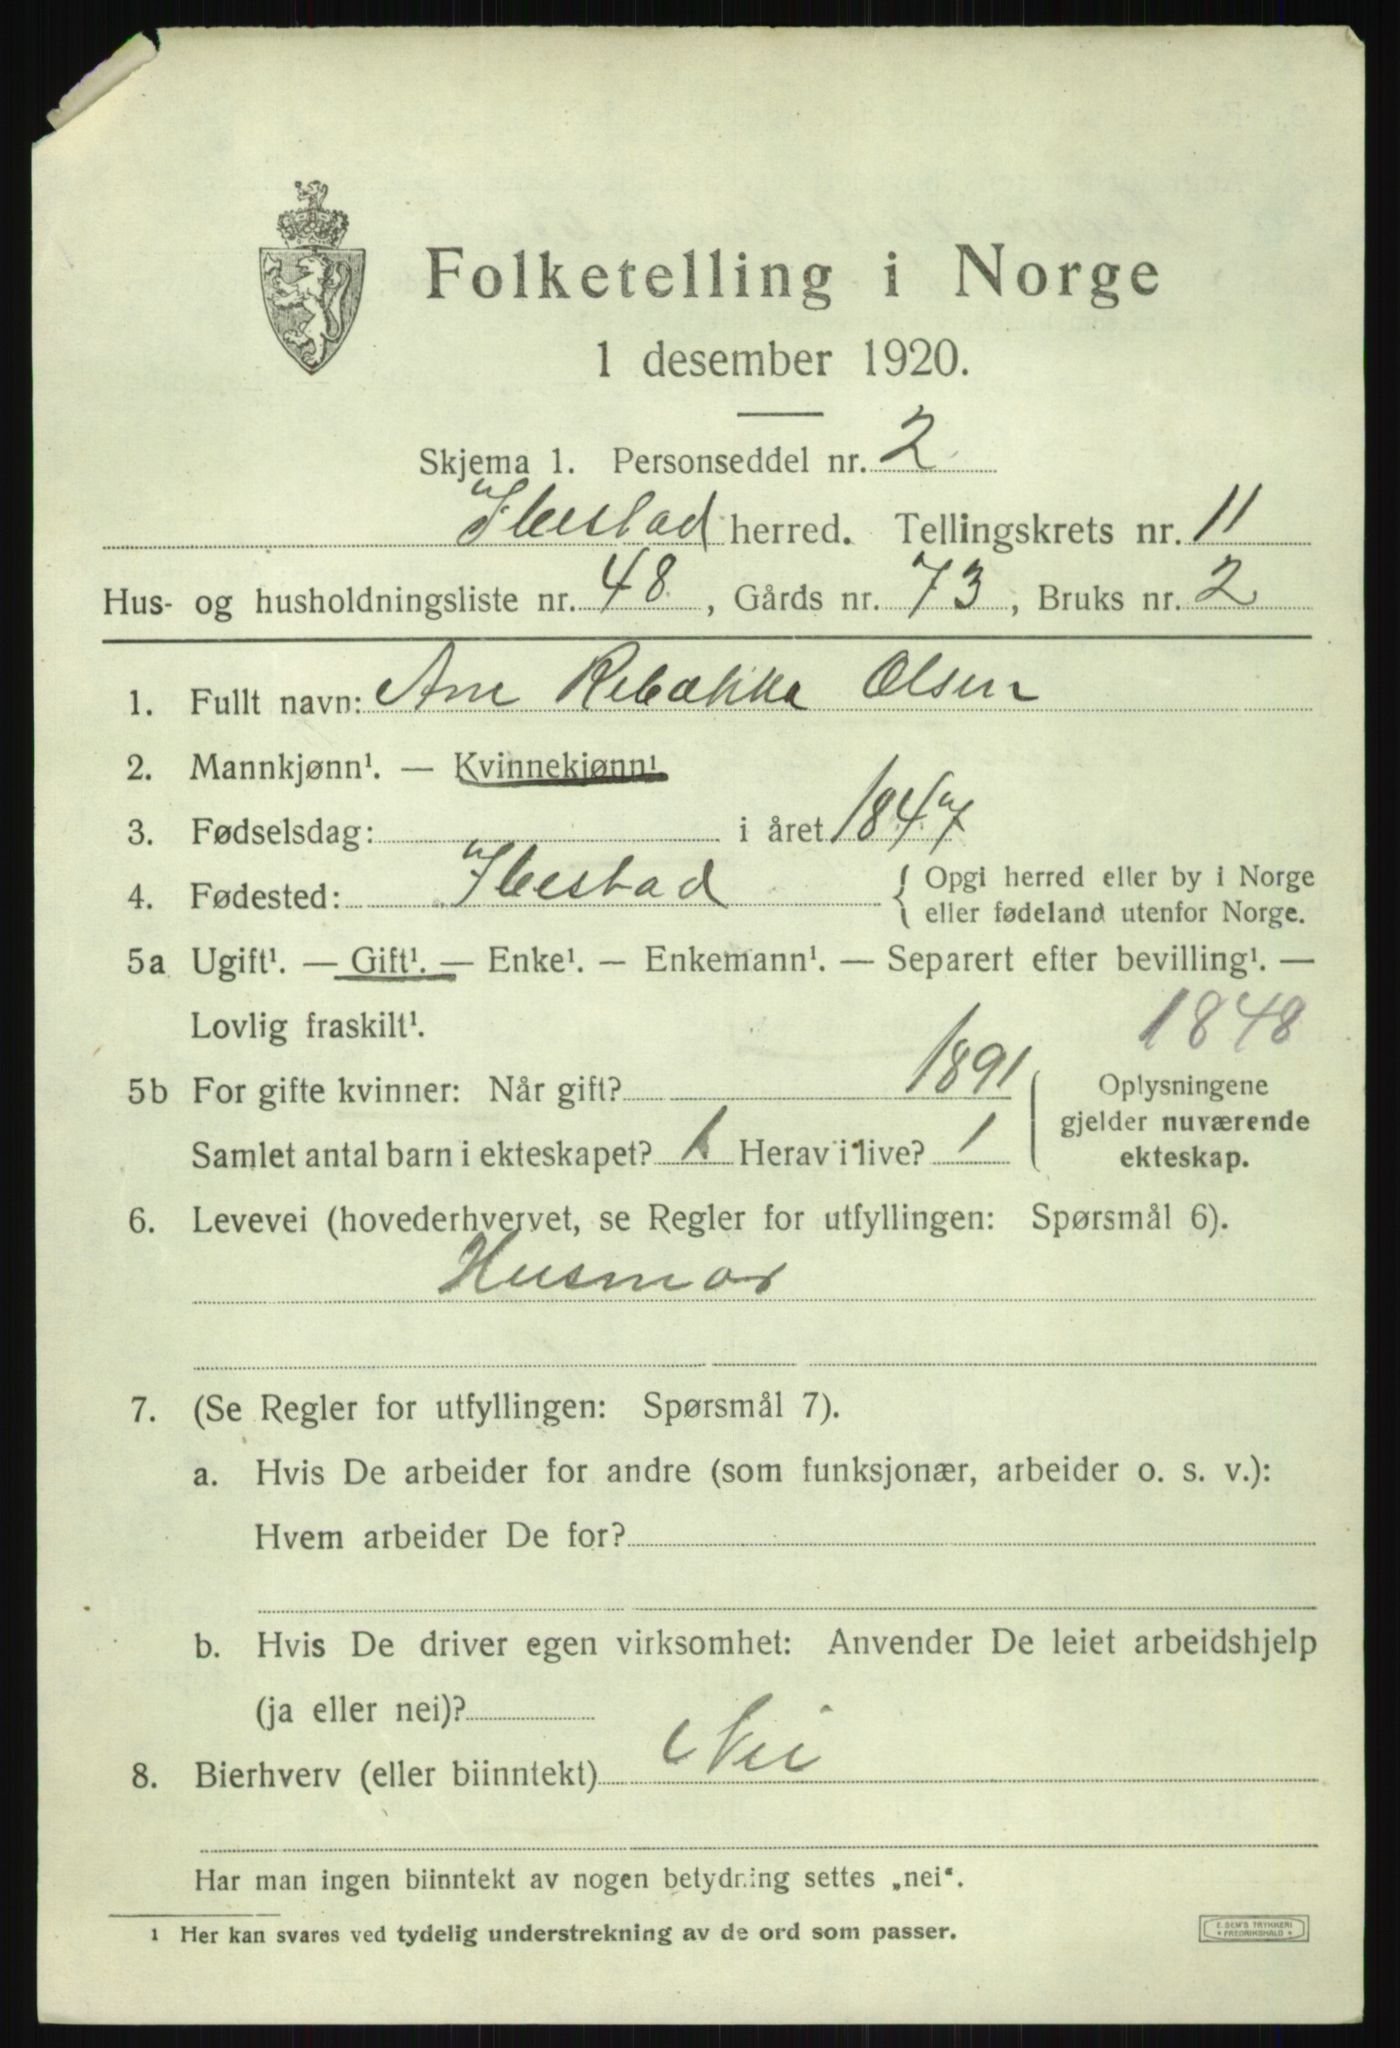 Folketelling i Norge
1 desember 1920.
Skjema 1. Personseddel nr. 2
Ibestad herred. Tellingskrets nr. 11
Hus- og husholdningsliste nr. 48, Gårds nr. 73, Bruks nr. 2
1. Fullt navn: Ane Rebækka Olsen
2. Mannkjønn¹. — Kvinnekjønn¹
3. Fødselsdag: i året 1847
4. Fødested: Ibestad { Opgi herred eller by i Norge
eller fødeland utenfor Norge.
5a Ugift¹. — Gift¹. — Enke¹. — Enkemann¹. — Separert efter bevilling¹. —
Lovlig fraskilt¹. 1848
5b For gifte kvinner: Når gift? 1891 Oplysningene
gjelder nuværende
Samlet antal barn i ekteskapet? 1 Herav i live? 1 ekteskap.
6. Levevei (hovederhvervet, se Regler for utfyllingen: Spørsmål 6).
Husmor
7. (Se Regler for utfyllingen: Spørsmål 7).
a. Hvis De arbeider for andre (som funksjonær, arbeider o. s. v.):
Hvem arbeider De for?
b. Hvis De driver egen virksomhet: Anvender De leiet arbeidshjelp
(ja eller nei)?
8. Bierhverv (eller biinntekt) Nei
Har man ingen biinntekt av nogen betydning settes „nei“.
1 Her kan svares ved tydelig understrekning av de ord som passer.
E. SEM'S TRYKKERI
* FREDRIKSHALD *